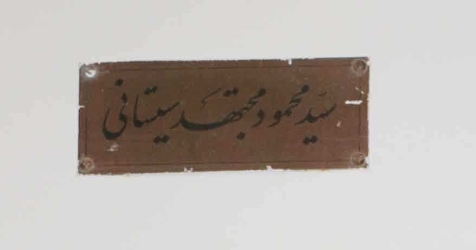 سید محمود مجتهد سیستانی